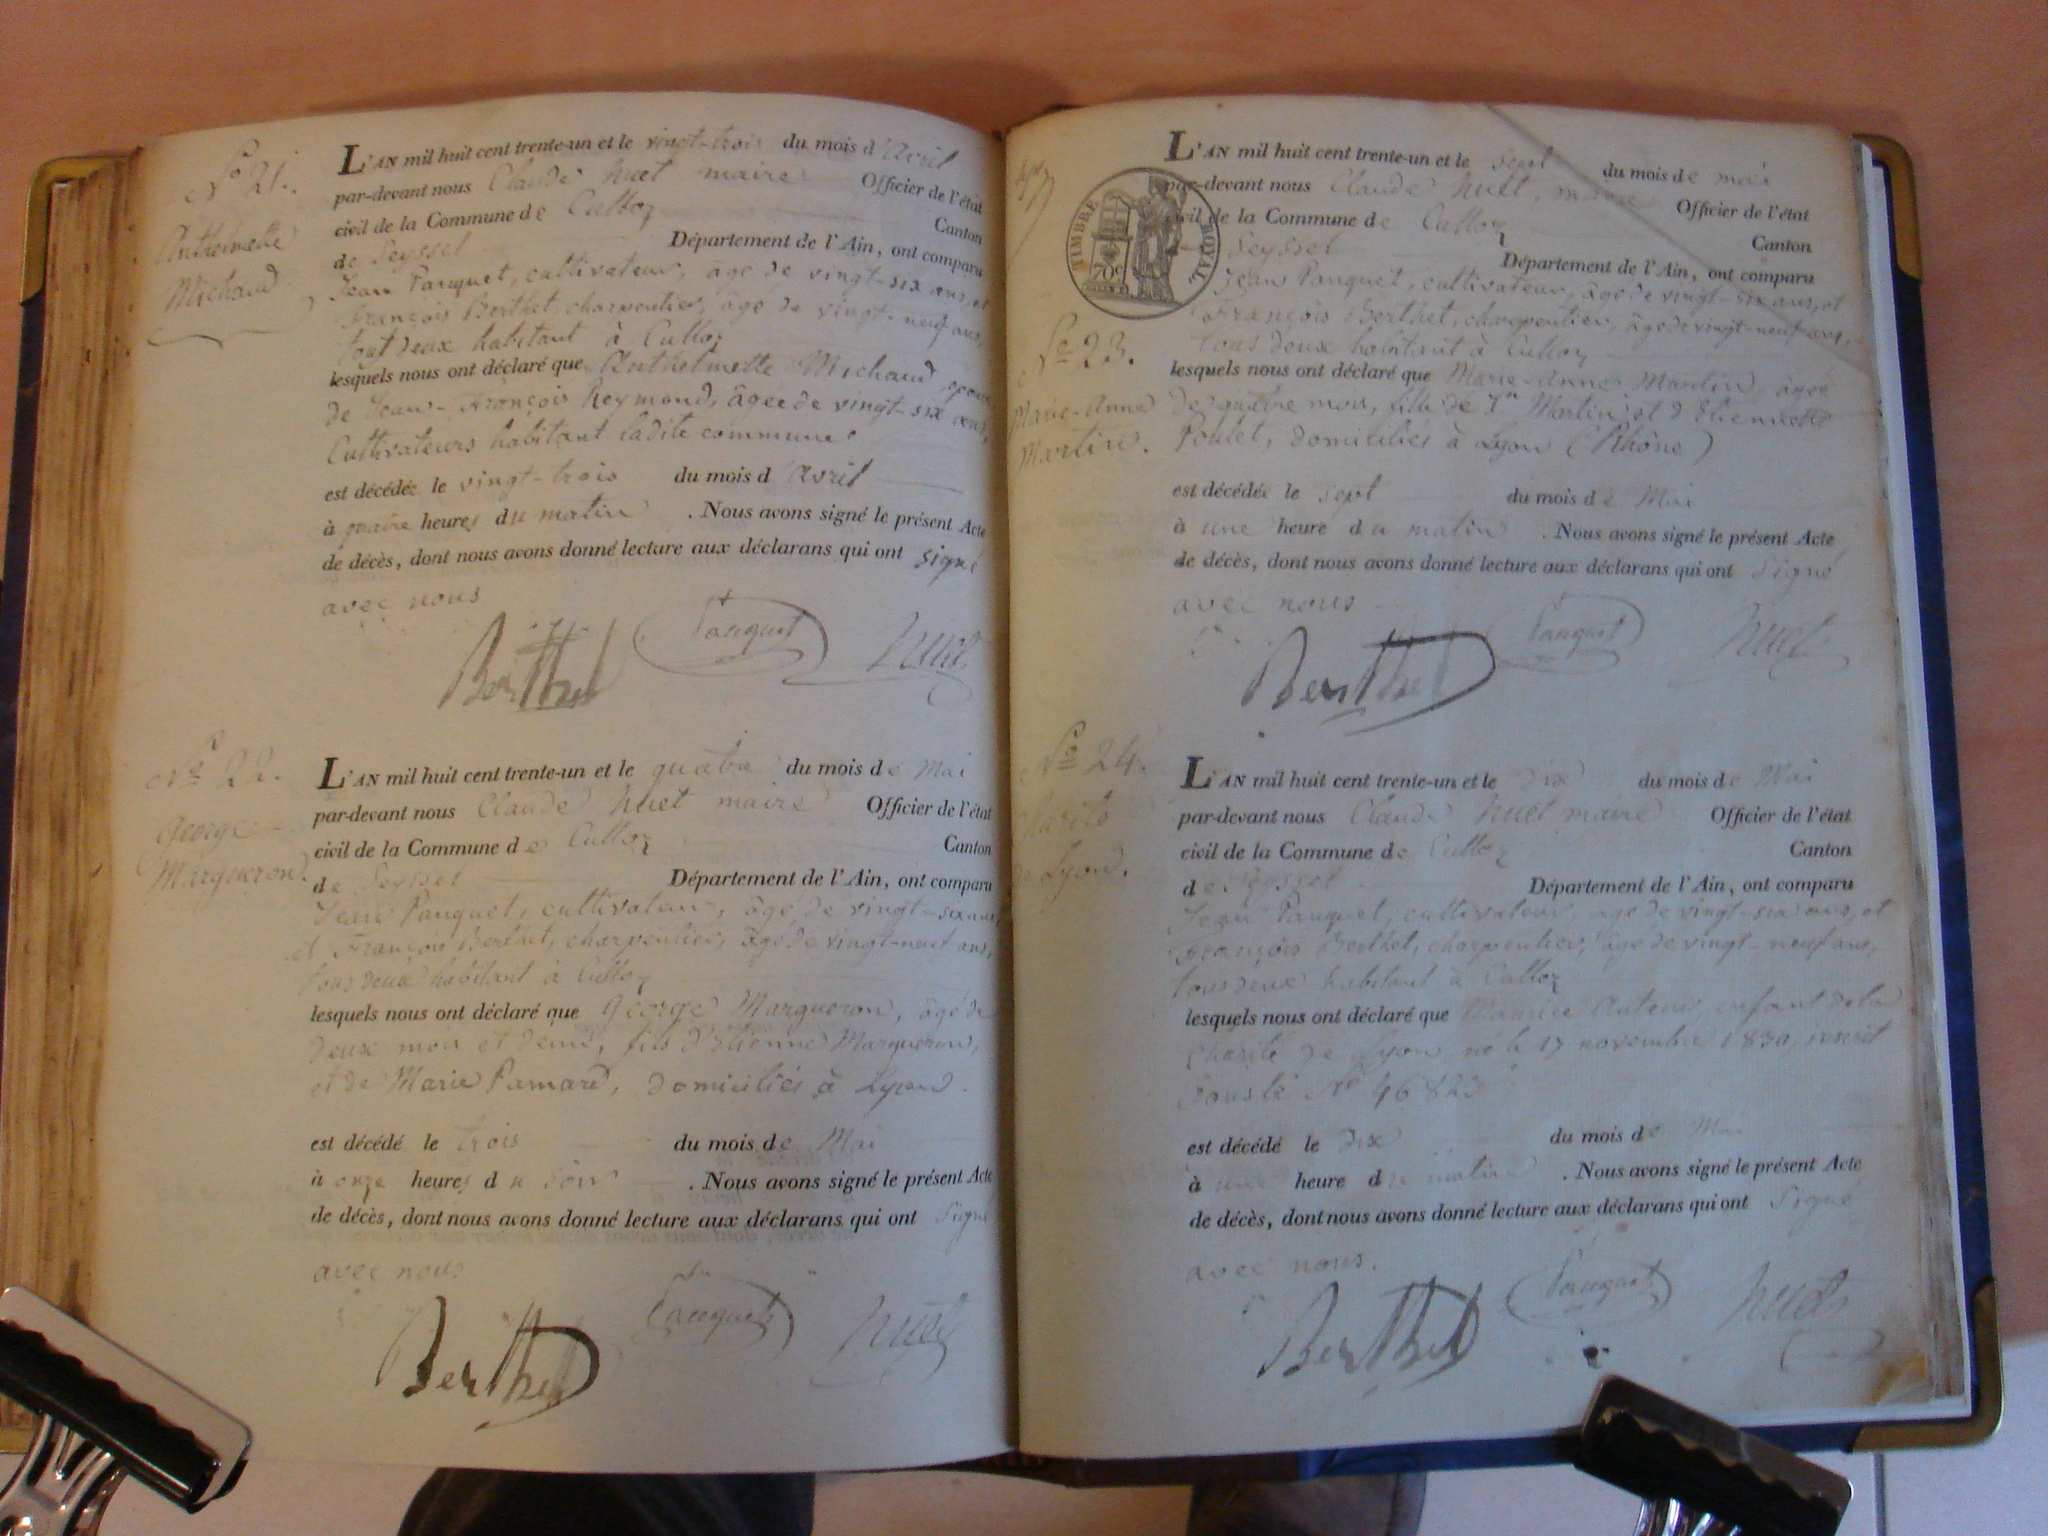 No 21.
Anthelmette
Michaud
L'AN mil huit cent trente-un et le vingt-trois du mois d'Avril
par-devant nous Claude Huet maire Officier de l'état
civil de la Commune de Culloz Canton
de Seyssel Département de l'Ain, ont comparu
Jean Pauquet, cultivateur, âgé de vingt-six ans, et
François Berthet, charpentier, âgé de vingt-neuf ans,
tout deux habitant à Culloz
lesquels nous ont déclaré que Anthelmette Michaud, épouse
de Jean-François Reymond, âgée de vingt-six ans,
Cultivateurs habitant ladite commune
est décédée le vingt-trois du mois d'Avril
à quatre heures du matin . Nous avons signé le présent Acte
de décès, dont nous avons donné lecture aux déclarans qui ont signé
avec nous
Berthet Pauquet Huet
No 22.
George
Margueron
L'AN mil huit cent trente-un et le quatre du mois de Mai
par-devant nous Claude Huet maire Officier de l'état
civil de la Commune de Culloz Canton
de Seyssel Département de l'Ain, ont comparu
Jean Pauquet, cultivateur, âgé de vingt-six ans,
et François Berthet, charpentier, âgé de vingt-neuf ans,
tous deux habitant à Culloz
lesquels nous ont déclaré que George Margueron, âgé de
deux mois et demi, fils d'Etienne Margueron,
et de Marie Pamard, domiciliés à Lyon.
est décédé le trois du mois de Mai
à onze heures du soir . Nous avons signé le présent Acte
de décès, dont nous avons donné lecture aux déclarans qui ont signé
avec nous
Berthet Pauquet Huet
TIMBRE ROYAL
70c
No 23.
Marie-Anne
Martin.
L'AN mil huit cent trente-un et le sept du mois de mai
par-devant nous Claude Huet, maire Officier de l'état
civil de la Commune de Culloz Canton
Seyssel Département de l'Ain, ont comparu
Jean Pauquet, cultivateur, âgé de vingt-six ans, et
François Berthet, charpentier, âgé de vingt-neuf ans,
tous deux habitant à Culloz
lesquels nous ont déclaré que Marie-Anne Martin, âgée
de quatre mois, fille de Jn Martin et d'Etiennette
Poulet, domiciliés à Lyon (Rhône)
est décédée le sept du mois de Mai
à une heure du matin . Nous avons signé le présent Acte
de décès, dont nous avons donné lecture aux déclarans qui ont signé
avec nous
Berthet Pauquet Huet
No 24.
Charité
de Lyon.
L'AN mil huit cent trente-un et le dix du mois de Mai
par-devant nous Claude Huet maire Officier de l'état
civil de la Commune de Culloz Canton
de Seyssel Département de l'Ain, ont comparu
Jean Pauquet, cultivateur, âgé de vingt-six ans, et
François Berthet, charpentier, âgé de vingt-neuf ans,
tous deux habitant à Culloz
lesquels nous ont déclaré que Maurice enfant de la
Charité de Lyon, né le 17 novembre 1830, inscrit
sous le No 46823
est décédé le dix du mois de Mai
à une heure du matin . Nous avons signé le présent Acte
de décès, dont nous avons donné lecture aux déclarans qui ont signé
avec nous.
Berthet Pauquet Huet